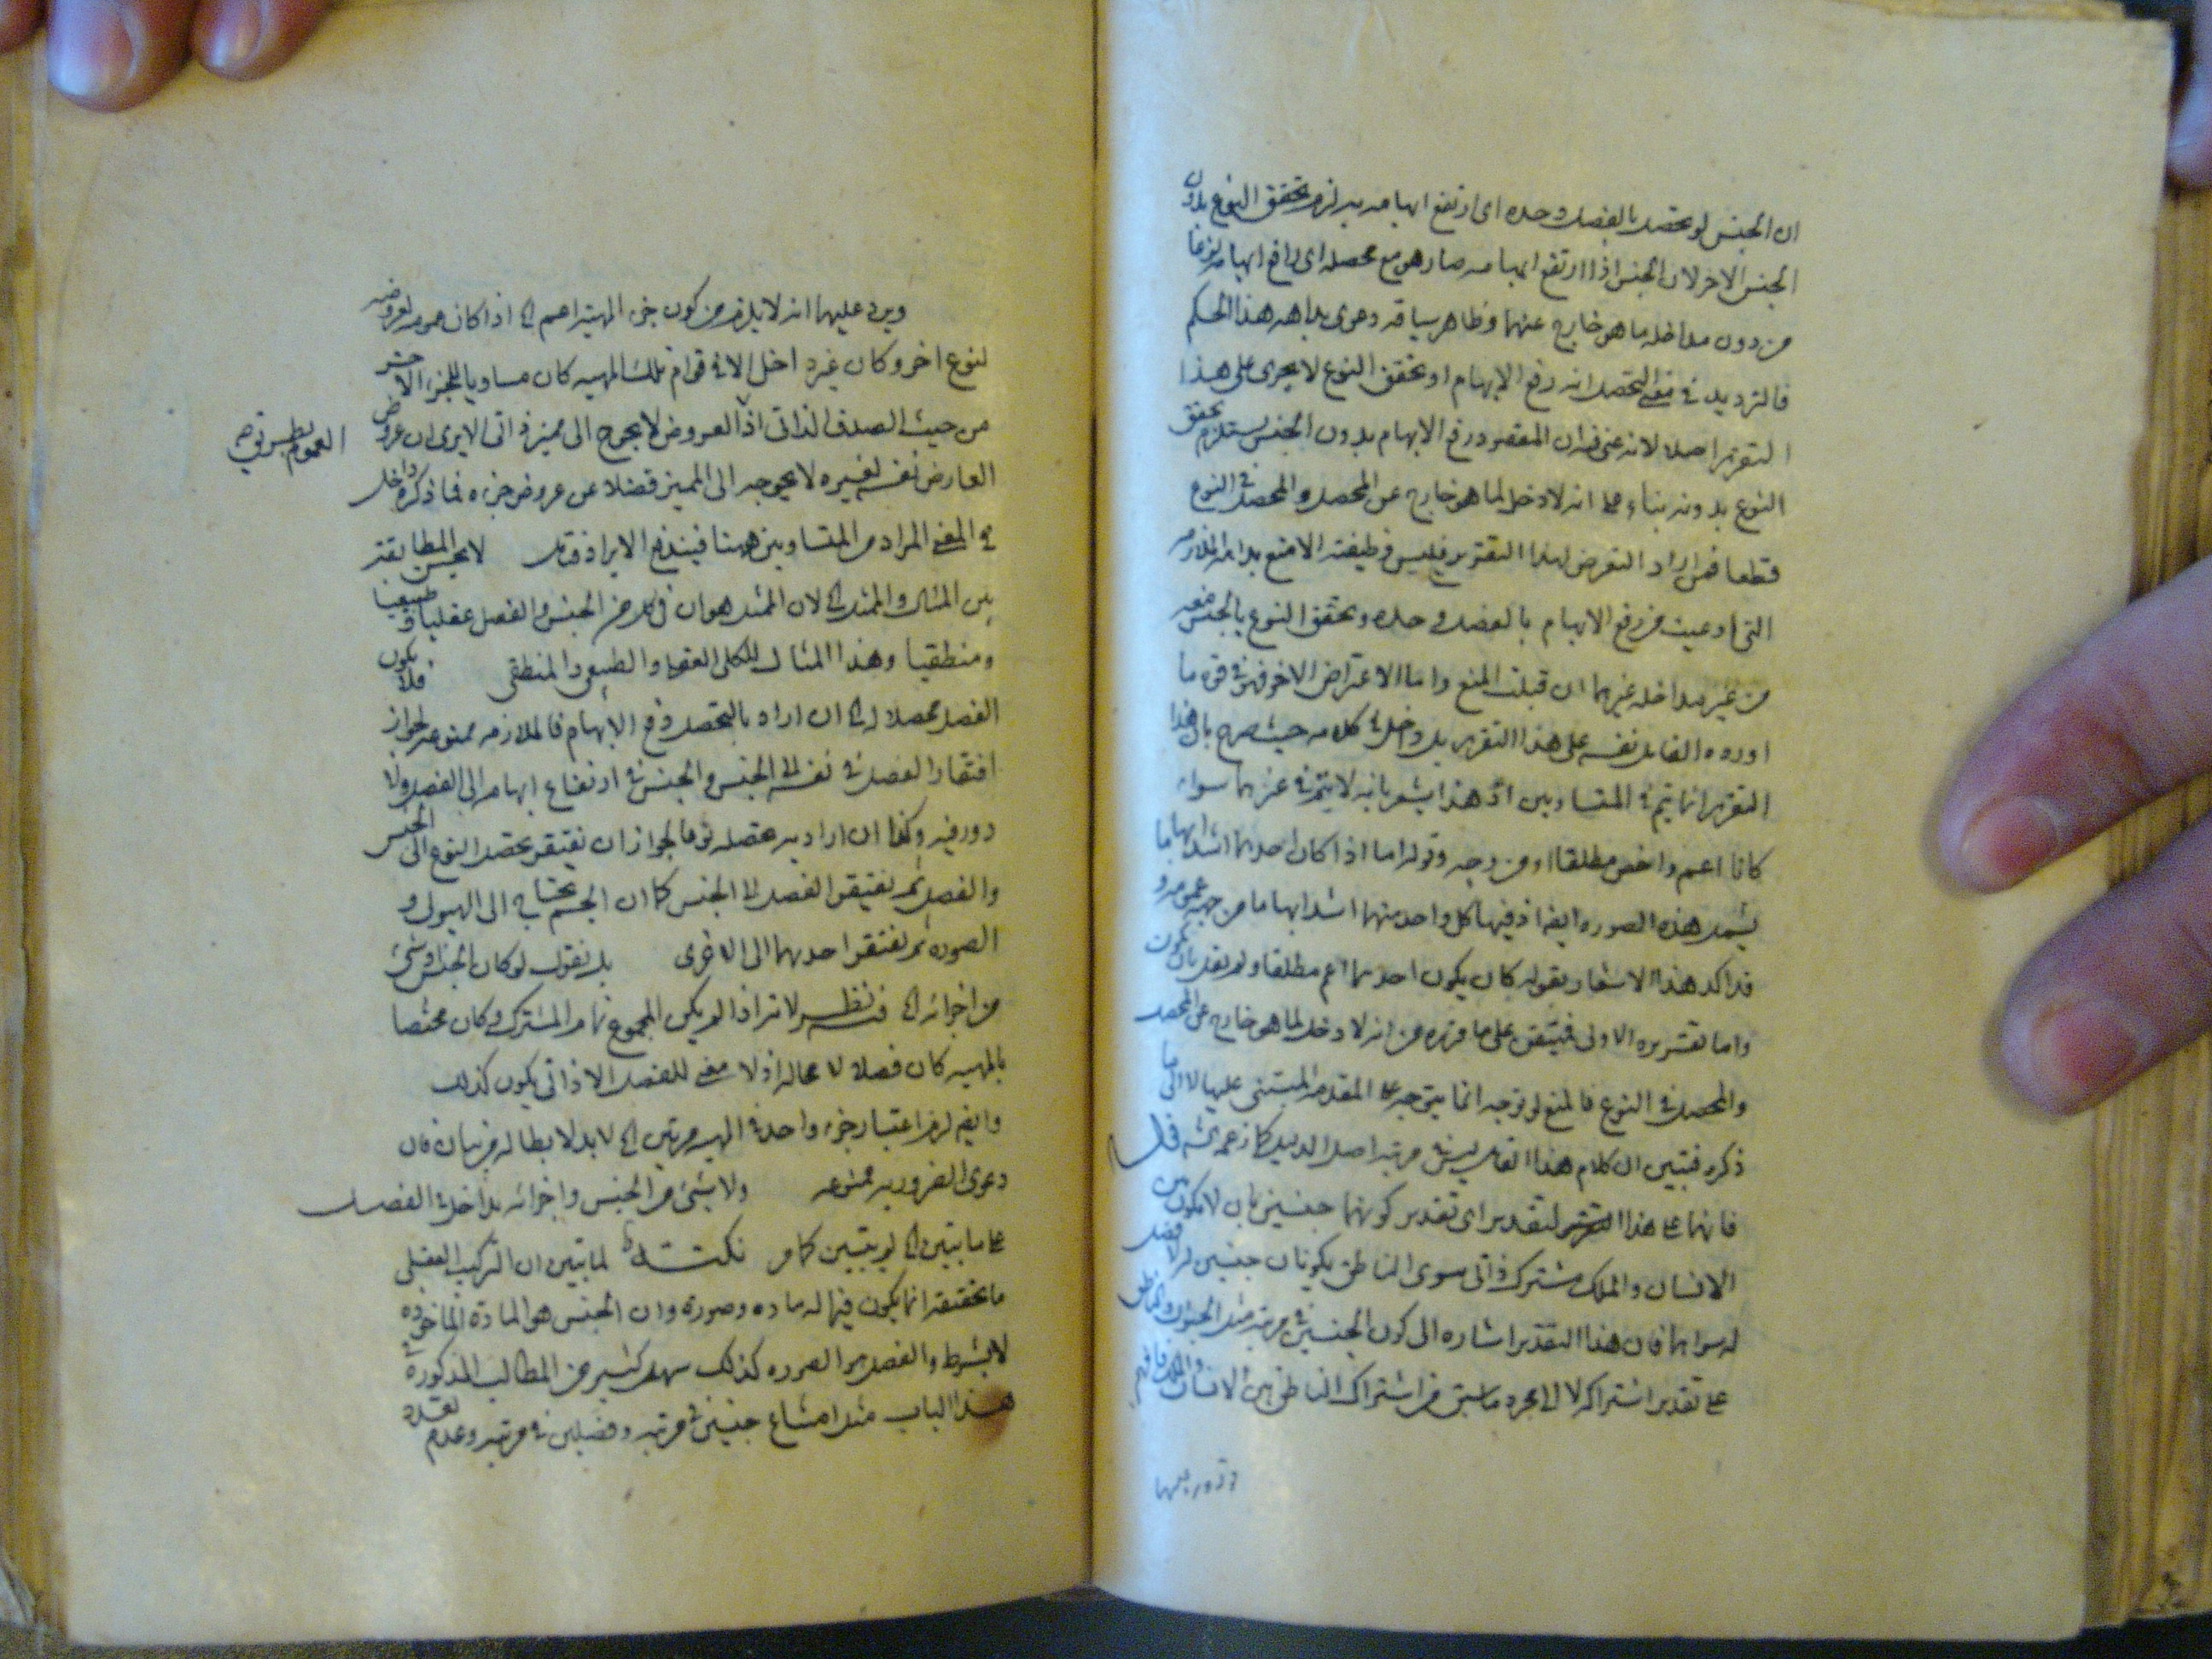 ان الجنس لو تحصل بالفصل وحده اى ارتفع ابهامه به لزم تحقق النوع بدون
الجنس الاخر لان الجنس اذا ارتفع ابهامه صار هو مع محصله اى رافع ابهامه نوعا
من دون مداخله ما هو خارج عنهما وظاهر سياقه دعوى بداهه هذا الحكم
فالترديد فى معنى التحصل انه رفع الابهام او تحقق النوع لا يجرى على هذا
التقرير اصلا لانه عنى فيه ان المقصود رفع الابهام بدون الجنس يستلزم تحقق
النوع بدونه بناء على انه لا دخل لما هو خارج عن المحصل والمحصل فى النوع
قطعا فمن اراد التعرض لهذا التقرير فليس وظيفته الا منع بداهه الملازمه
التى ادعيت من رفع الابهام بالفصل وحده وتحقق النوع بالجنس معه
من غير مداخله غيرهما ان قبلت المنع واما الاعتراض الاخر فهو فى قوه ما
اورده القايل نفسه على هذا التقرير بل داخل فى كلامه حيث صرح بان هذا
التقرير انما يتم فى المتساويين اذ هذا يشعر بانه لا يتم فى غيرهما سواء
كانا اعم واخص مطلقا او من وجه وقوله اما اذا كان احدهما اشد ابهاما
يشمل هذه الصوره ايضا اذ فيها كل واحد منهما اشد ابهاما من جهه عمومه و
قد اكد هذا الاشعار بقوله كان يكون احدهما اعم مطلقا ولم يقل بان يكون
واما تقريره الاولى فيتبنى على ما قرره من انه لا دخل لما هو خارج عن المحصل
والمحصل فى النوع فالمنع لو توجه انما يتوجه على المقدمه المبتنى عليها لا الى ما
ذكره فتبين ان كلام هذا القايل ليس فى مرتبه اصل الدليل كما زعمه
فانهما على هذا التقدير اى تقدير كونهما جنسين بان لا يكون بين
الانسان والملك مشترك ذاتى سوى الناطق يكونان جنسين له لا فصل
له سواهما فان هذا التقدير اشاره الى كون الجنسين فى مرتبه مثل الحيوان والناطق
على تقدير اشتراكه لا الى مجرد ما سبق من اشتراك الناطق بين الانسان والملك فافهم
ويرد عليهما
ويرد عليهما انه لا يلزم من كون جزء المهيه اعم الى اذا كان عمومه لعروضه
لنوع اخر وكان غير داخل الا فى قوام تلك المهيه كان مساويا للجزء الاخر
من حيث الصدق الذاتى اذ العروض لا يحوج الى مميز ذاتى الا يرى ان عروض
العموم بطريق
العارض نفسه لغيره لا يحوجه الى المميز فضلا عن عروض جزءه فما ذكره داخل
فى المعنى المراد من المتساويين ههنا فيندفع الايراد لا يحسن المطابقه
بين المثال والممثل الى لان الممثل هو ان فى كل من الجنس والفصل عقليا وطبيعيا
ومنطقيا وهذا المثال للكلى العقلى والطبيعى والمنطقى فلا يكون
الفصل محصلا له الى ان اراد بالتحصل رفع الابهام فالملازمه ممنوعه لجواز
افتقار الفصل فى نفسه الى الجنس والجنس فى ارتفاع ابهامه الى الفصل ولا
دور فيه وكذا ان اراد به تحصله نوعا لجواز ان يفتقر تحصل النوع الى الجنس
والفصل ثم يفتقر الفصل الى الجنس كما ان الجسم يحتاج الى الهيولى و
الصوره ثم يفتقر احدهما الى الاخرى بل نقول لو كان الجنس او شئ
من اجزائه الى فيه نظر لانه اذا لم يكن المجموع تمام المشترك وكان مختصا
بالمهيه كان فصلا لا محاله اذ لا معنى للفصل الا ذاتى يكون كذلك
وايضا لزم اعتبار جزء واحد فى المهيه مرتين الى لا بد لابطاله من بيان فان
دعوى الضروريه ممنوعه ولا شئ من الجنس واجزائه بداخل فى الفصل
على ما تبين الى لم يتبين كما مر لما تبين ان التركيب العقلى
ما تحققته انما يكون فيما له ماده وصورة وان الجنس هو المادة الماخوذه
لا بشرط والفصل هو الصوره كذلك سهل كثير من المطالب المذكورة فى
هذا الباب مثل امتناع جنسين فى مرتبه وفصلين فى مرتبه وعدم تعدد